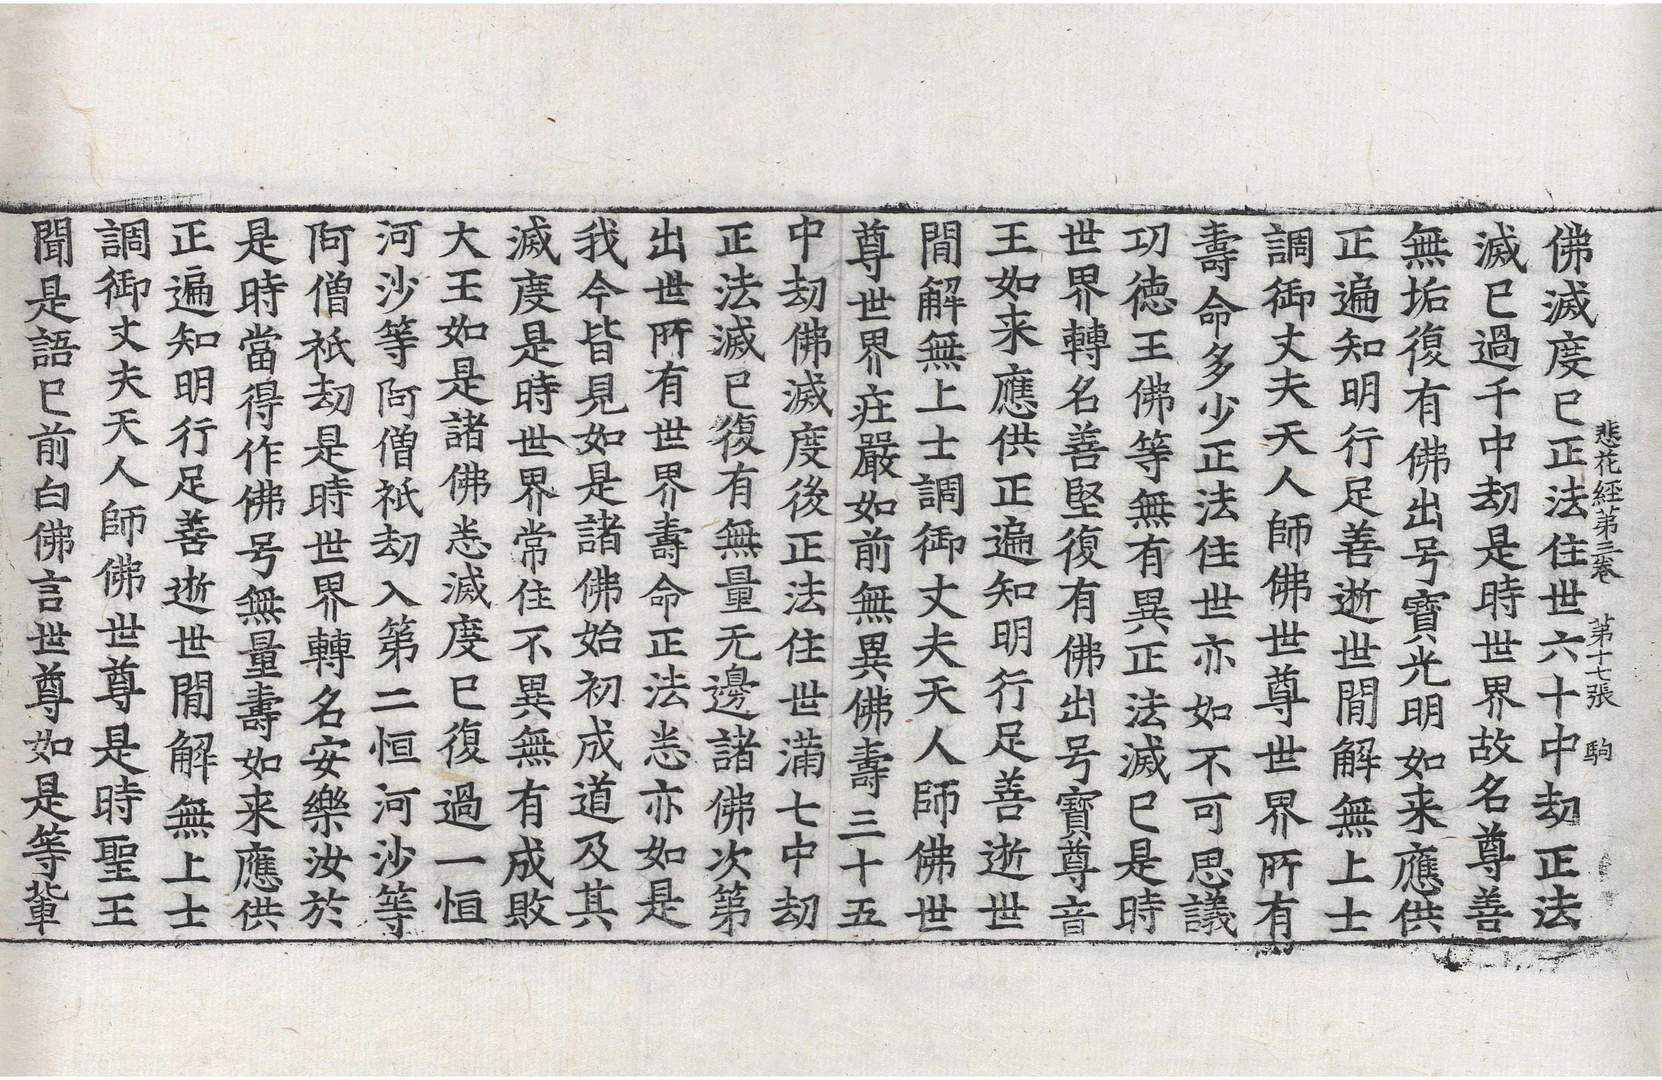 悲花經第三卷 第十七張 駒
佛滅度已正法住世六十中劫正法
滅已過千中劫是時世界故名尊善
無垢復有佛出号寶光明如来應供
正遍知明行足善逝世間解無上士
調御丈夫天人師佛世尊世界所有
壽命多少正法住世亦如不可思議
功德王佛等無有異正法滅已是時
世界轉名善堅復有佛出号寶尊音
王如来應供正遍知明行足善逝世
間解無上士調御丈夫天人師佛世
尊世界庄嚴如前無異佛壽三十五
中劫佛滅度後正法住世滿七中劫
正法滅已復有無量无邊諸佛次第
出世所有世界壽命正法悉亦如是
我今皆見如是諸佛始初成道及其
滅度是時世界常住不異無有成敗
大王如是諸佛悉滅度已復過一恒
河沙等阿僧祇劫入第二恒河沙等
阿僧祇劫是時世界轉名安樂汝於
是時當得作佛号無量壽如来應供
正遍知明行足善逝世間解無上士
調御丈夫天人師佛世尊是時聖王
聞是語已前白佛言世尊如是等輩